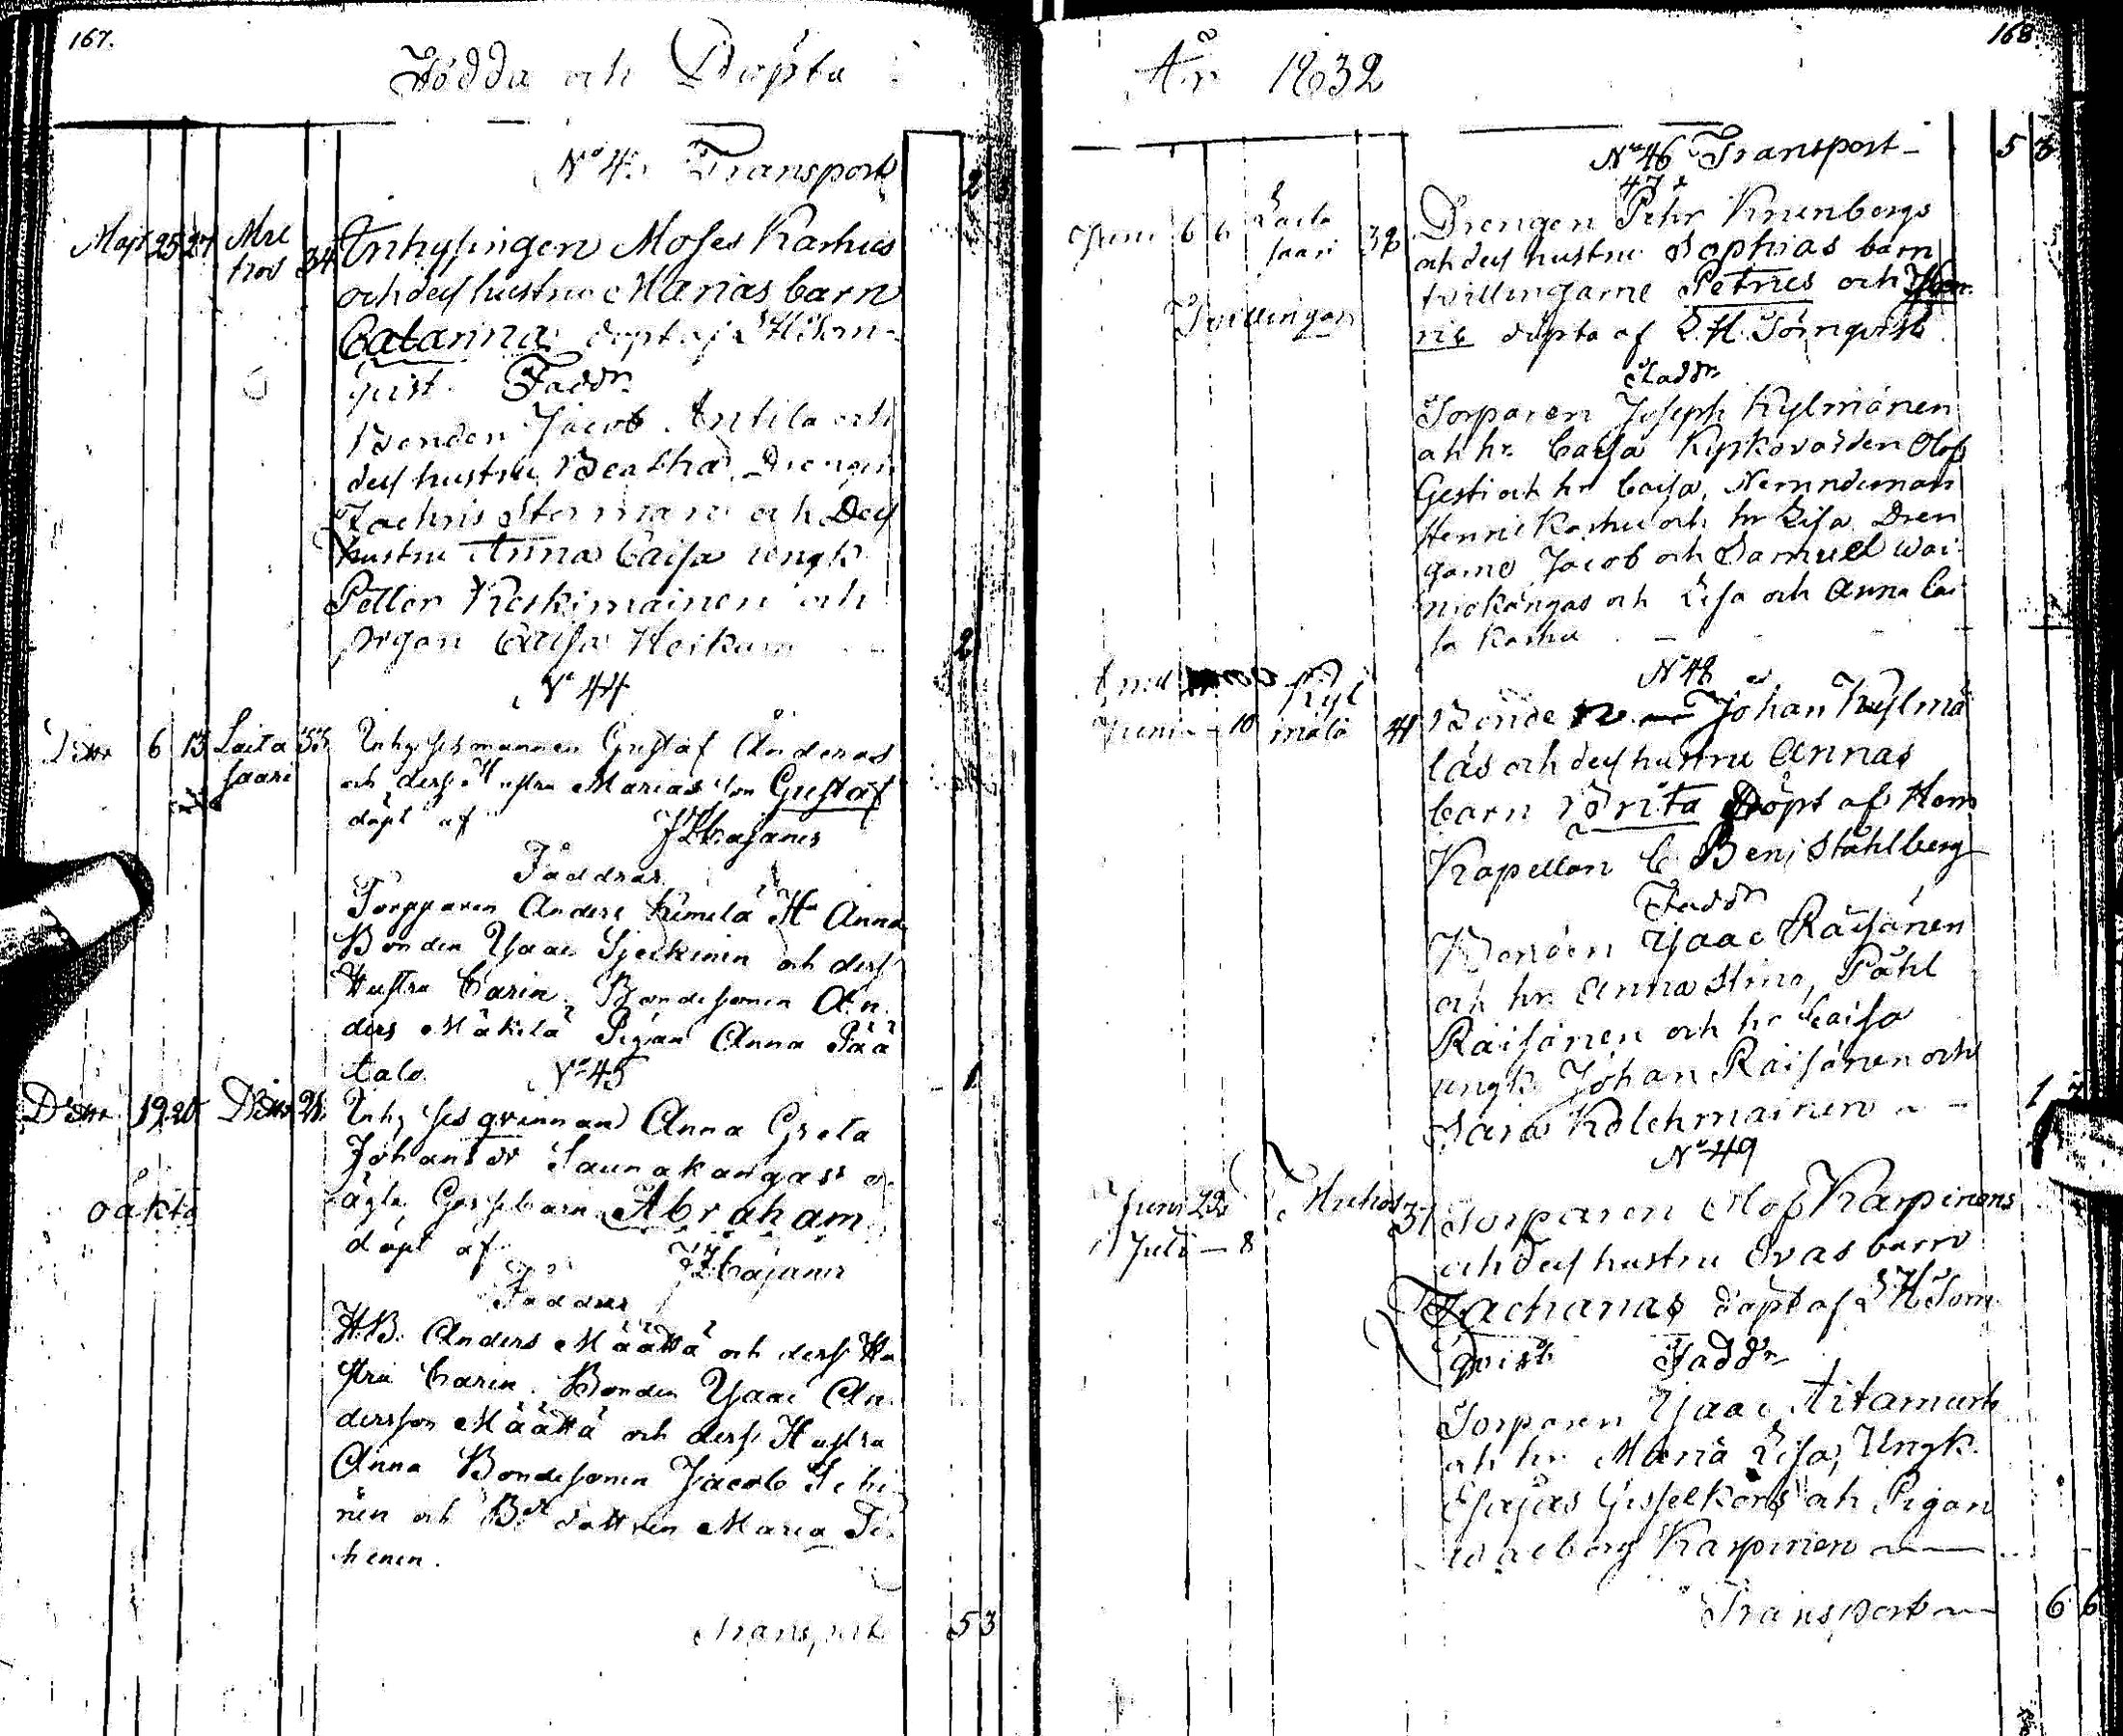 167.
Födda och Döpta
Transport 2
Maji 25 27 34 Inhysingen Moses Karhus
och dess hustru Marias barn
Catarina döpt af L H Törn-
qvist. Faddr
Bonden Jacob Antila och
dess hustru Beatha, Drengen
och Dess
hustru Anna Caisa ungk
Petter Keskimainen och
pigan Caisa 2
No 44
6 13 Laita 33 Inhysesmannen Gustaf Anderas
saari och dess Hustru Marias son Gustaf
döpt af J Cajanus
Faddrar
Torpparen Anders Kimilä Hu Anna
Bonden Isaac och dess
Hustru Carin. Bondesonen An-
ders Mäkilä Pigan Anna Pää
talo. No 45 1
19 20 21 Inhysesqvinnan Anna Greta
Johansdr Saunakangass o-
oäkta ägta Gossebarn Abraham
döpt af J Cajanus
Faddrar
H.B. Anders Määttä och dess Hu
stru Carin. Bonden Isaac An-
dersson Määttä och dess Hustru
Anna Bondesonen Jacob Ti hi
nen och Bde dottren Maria Ti-
henen.
Transport 5 3
168.
År 1832
No 46 Transport - 5 3
47
Juni 6 6 Laita Drengen Pehr Knenbergs
saari och dess hustru Sophias barn
Tvillingar tvillingarne Petrus och Hen
ric döpta af L. H. Törnqvist
Faddr
Torparen Joseph Kylmänen
och hr Caisa Kyrkovärden Olof
Gesti och hr Caisa, Nemndeman
Henric Karhu och hr Lisa Dren
garne Jacob och Samuel Wai-
niokangas och Lisa och Anna Cai
sa Karhu
No 48
Kyl Bonden Johan Kylmä
Juni - 10 mälä 41 läs och dess hustru Annas
barn Brita Döpt af Herr
Kapellan C Benj Ståhlberg
Faddr
Bonden Isaac Räisänen
och hr Anna Stina, Påhl
Räisänen och hr Caisa
ungk Johan Räisänen och
Sara Kolehmainen - - 1
No 49
Juni 22 31 Torparen Olof Karpinens
Juli - 8 och dess hustru Evas barn
Zacharias döpt af L H Törn
qvist Faddr
Torparen Isaac Aitamurto
och hr Maria Lisa, Ungk.
Esajas Gesselkors och Pigan
Walborg Karpinen
Transport 6 6